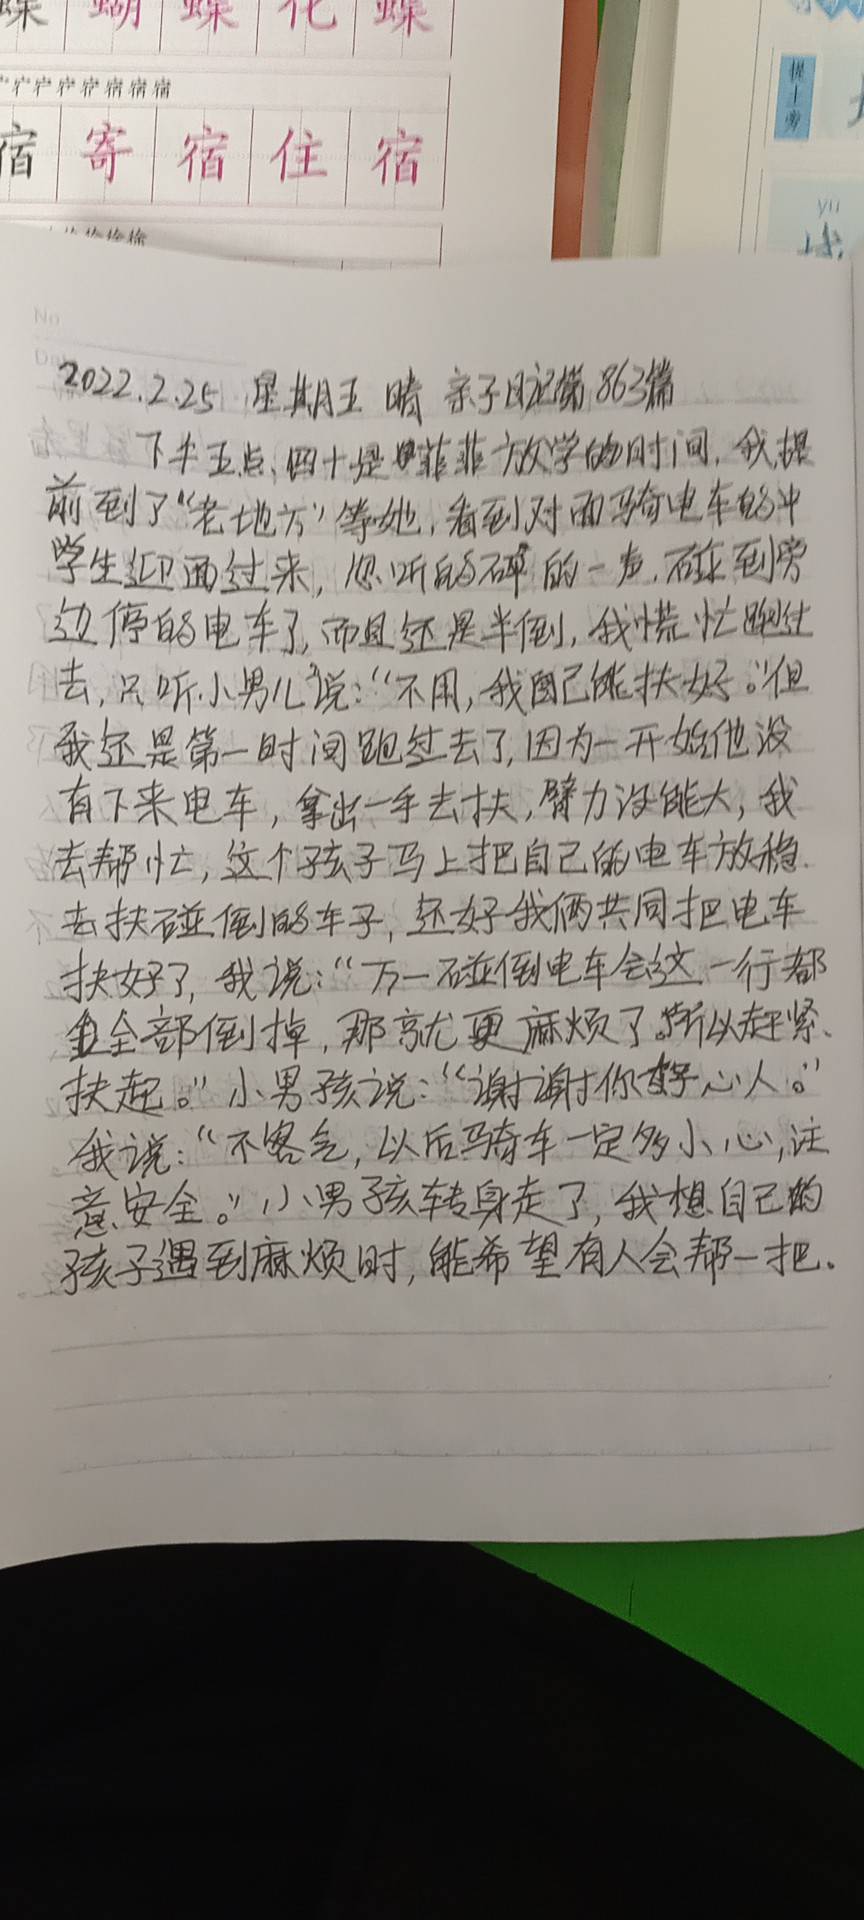 蝶 蝴 蝶 化 蝶
宿 寄 宿 住 宿
提土旁
yu
No
Date
2022.2.25 星期五 晴 亲子日记第863篇
下半五点四十是菲菲放学的时间,我提
前到了“老地方”等她,看到对面骑电车的中
学生迎面过来,忽听的砰的一声,碰到旁
边停的电车了,而且还是半倒,我慌忙跑过
去,只听小男儿说:“不用,我自己能扶好。”但
我还是第一时间跑过去了,因为一开始他没
有下来电车,拿出一手去扶,臂力没能大,我
去帮忙,这个孩子马上把自己的电车放稳.
去扶碰倒的车子,还好我俩共同把电车
扶好了,我说:“万一碰倒电车会这一行都
全部倒掉,那就更麻烦了。所以赶紧、
扶起。”小男孩说:“谢谢你好心人。”
我说:“不客气,以后骑车一定多小心,注
意安全。”小男孩转身走了,我想自己的
孩子遇到麻烦时,能希望有人会帮一把.